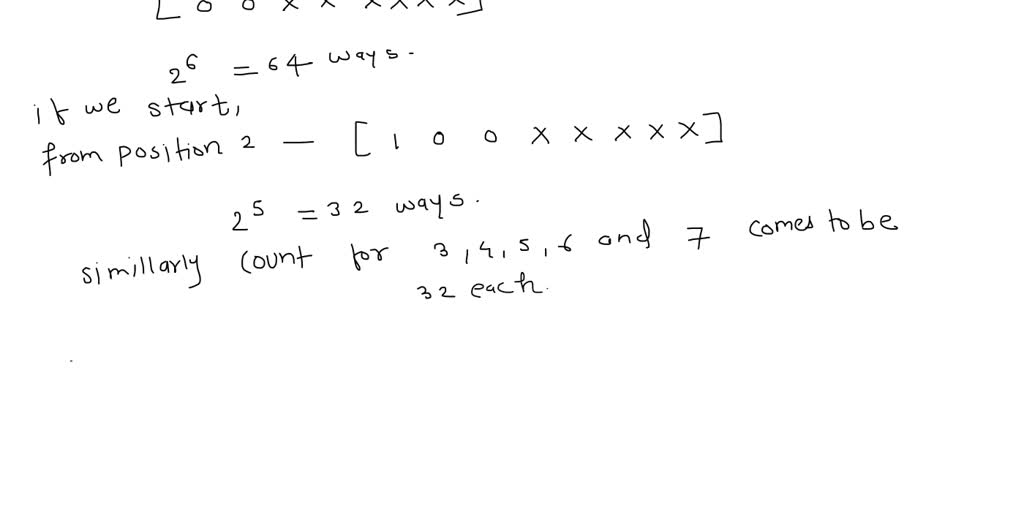 [ 0 0 x x x x x x ]
2^6 = 64 ways.
if we start,
from position 2 — [ 1 0 0 x x x x x ]
2^5 = 32 ways.
simillarly count for 3, 4, 5, 6 and 7 comes to be
32 each.